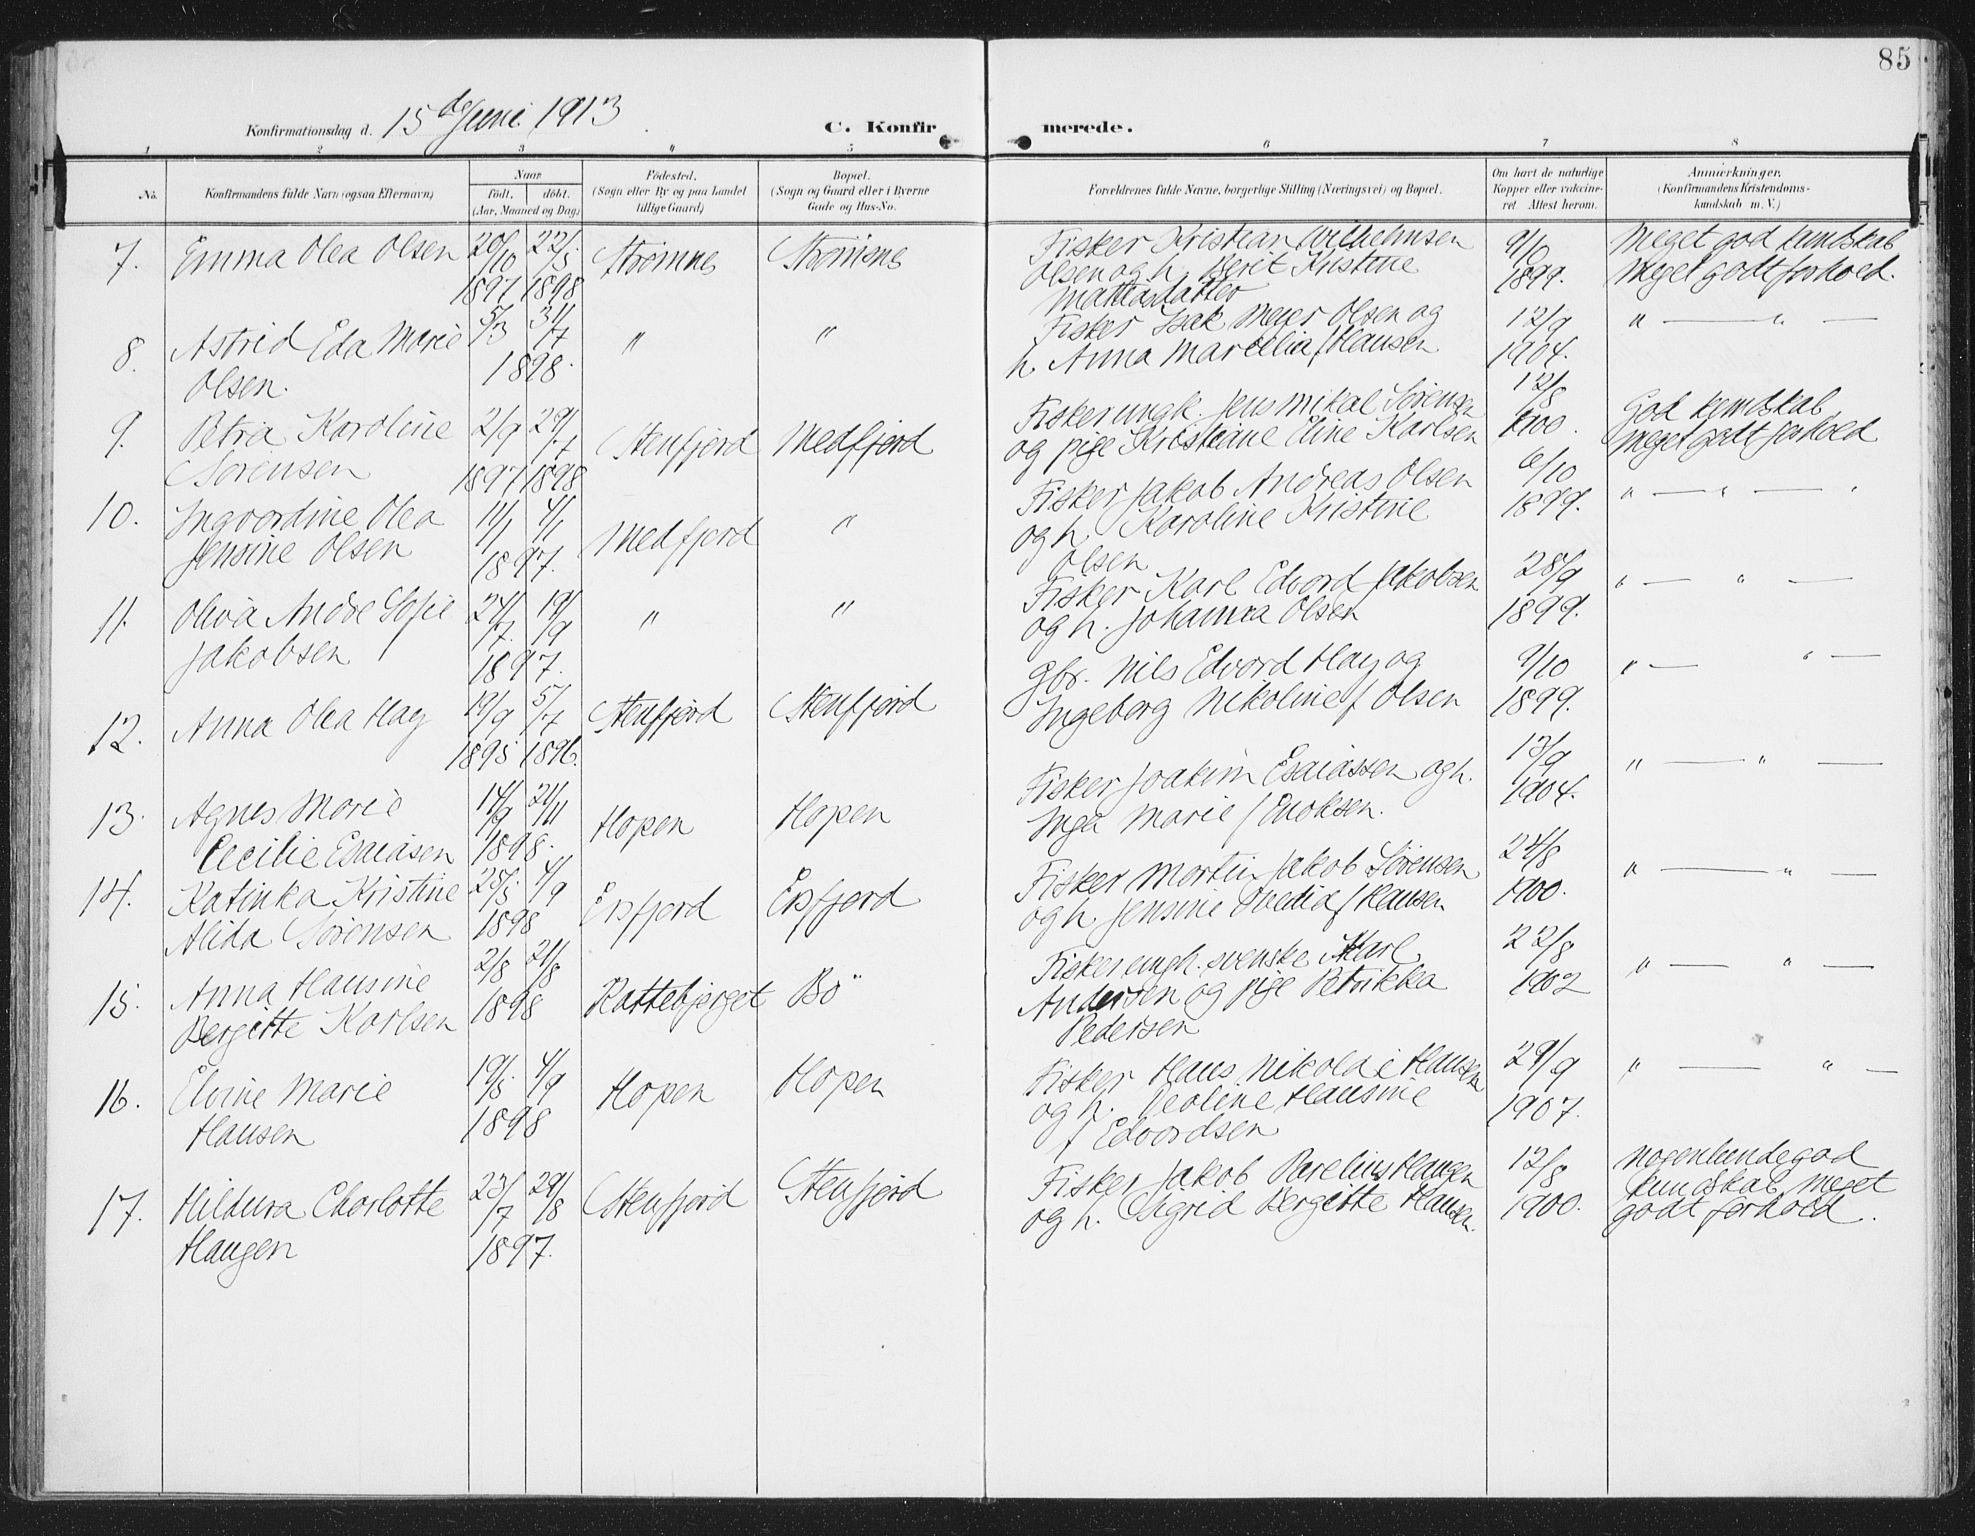 85
Konfirmationsdag d. 15de Juni 1913
C. Konfir merede.
1 2 3 4 5 6 7 8
No. Konfirmandens fulde Navn (ogsaa Efternavn)
Naar født, døbt. (Aar, Maaned og Dag)
Fødested. (Sogn eller By og paa Landet tillige Gaard)
Bopæl. (Sogn og Gaard eller i Byerne Gade og Hus-No.
Forældrenes fulde Navne, borgerlige Stilling (Næringsvei) og Bopæl.
Om havt de naturlige Kopper eller vakcineret. Attest herom.
Anmærkninger. (Konfirmandens Kristendomskundskab m. V.)
7. Emma Olea Olsen 20/10 1897 22/5 1898 Strømnes Strømsnes
Fisker Kristian Wilhelmsen
Olsen og h. Berit Kristine
Mattisdatter
9/10 1899.
Meget god kundskab
Meget godt forhold.
8. Astrid Eda Marie
Olsen.
5/3 31/7 1898. " "
Fisker Isak Meier Olsen og
h. Anna Marcelia f. Hansen
12/9 1904.
" — " —
9. Petra Karoline
Sørensen
2/9 1897 29/7 1898 Stenfjord Medfjord
Fisker ungk. Jens Mikal Sørensen
og pige Kristiane Eline Karlsen
12/8 1900.
God kundskab
Meget godt forhold
10. Ingvordine Olea
Jensine Olsen
11/1 4/1 1897. Medfjord "
Fisker Jakob Andreas Olsen
og h. Karoline Kristine
Olsen
6/10 1899.
" — " — "
11. Oliva Andre Sofie
Jakobsen
24/7 19/9 1897. " "
Fisker Karl Edvord Jakobsen
og h. Johanna Olsen
28/9 1899.
" — " —
12. Anna Olea Hay 19/9 1895 5/7 1896. Stenfjord Stenfjord
gbr. Nils Edvord Hay og
Ingeborg Nikoline f. Olsen
9/10 1899.
" — " —
13. Agnes Marie
Cecilie Esaiasen
14/9 21/11 1898. Hopen Hopen
Fisker Joakim Esaiassen og h.
Inga Marie f. Enoksen.
13/9 1904.
" — " —
14. Katinka Kristine
Alida Sørensen
25/5 4/9 1898 Ersfjord Ersfjord
Fisker Martin Jakob Sørensen
og h. Jensine f. Hansen
24/8 1900.
" — " —
15. Anna Hansine
Bergitte Karlsen
2/8 21/8 1898 Rattebjerget Bø
Fisker ungk. svenske Karl
Andersen og pige Petrikka
Pedersen
22/8 1902
" — " —
16. Elvine Marie
Hansen
19/5 4/9 1898 Hopen Hopen
Fisker Hans Nikolai Hansen
og h. Peoline Hansine
f. Edvordsen
29/9 1907.
" — " —
17. Hildura Charlotte
Haugen
23/7 29/8 1897. Stenfjord Stenfjord
Fisker Jakob Parelius Haugen
og h. Sigrid Bergitte Hansen.
12/8 1900.
Nogenlunde god
kundskab meget
godt forhold.